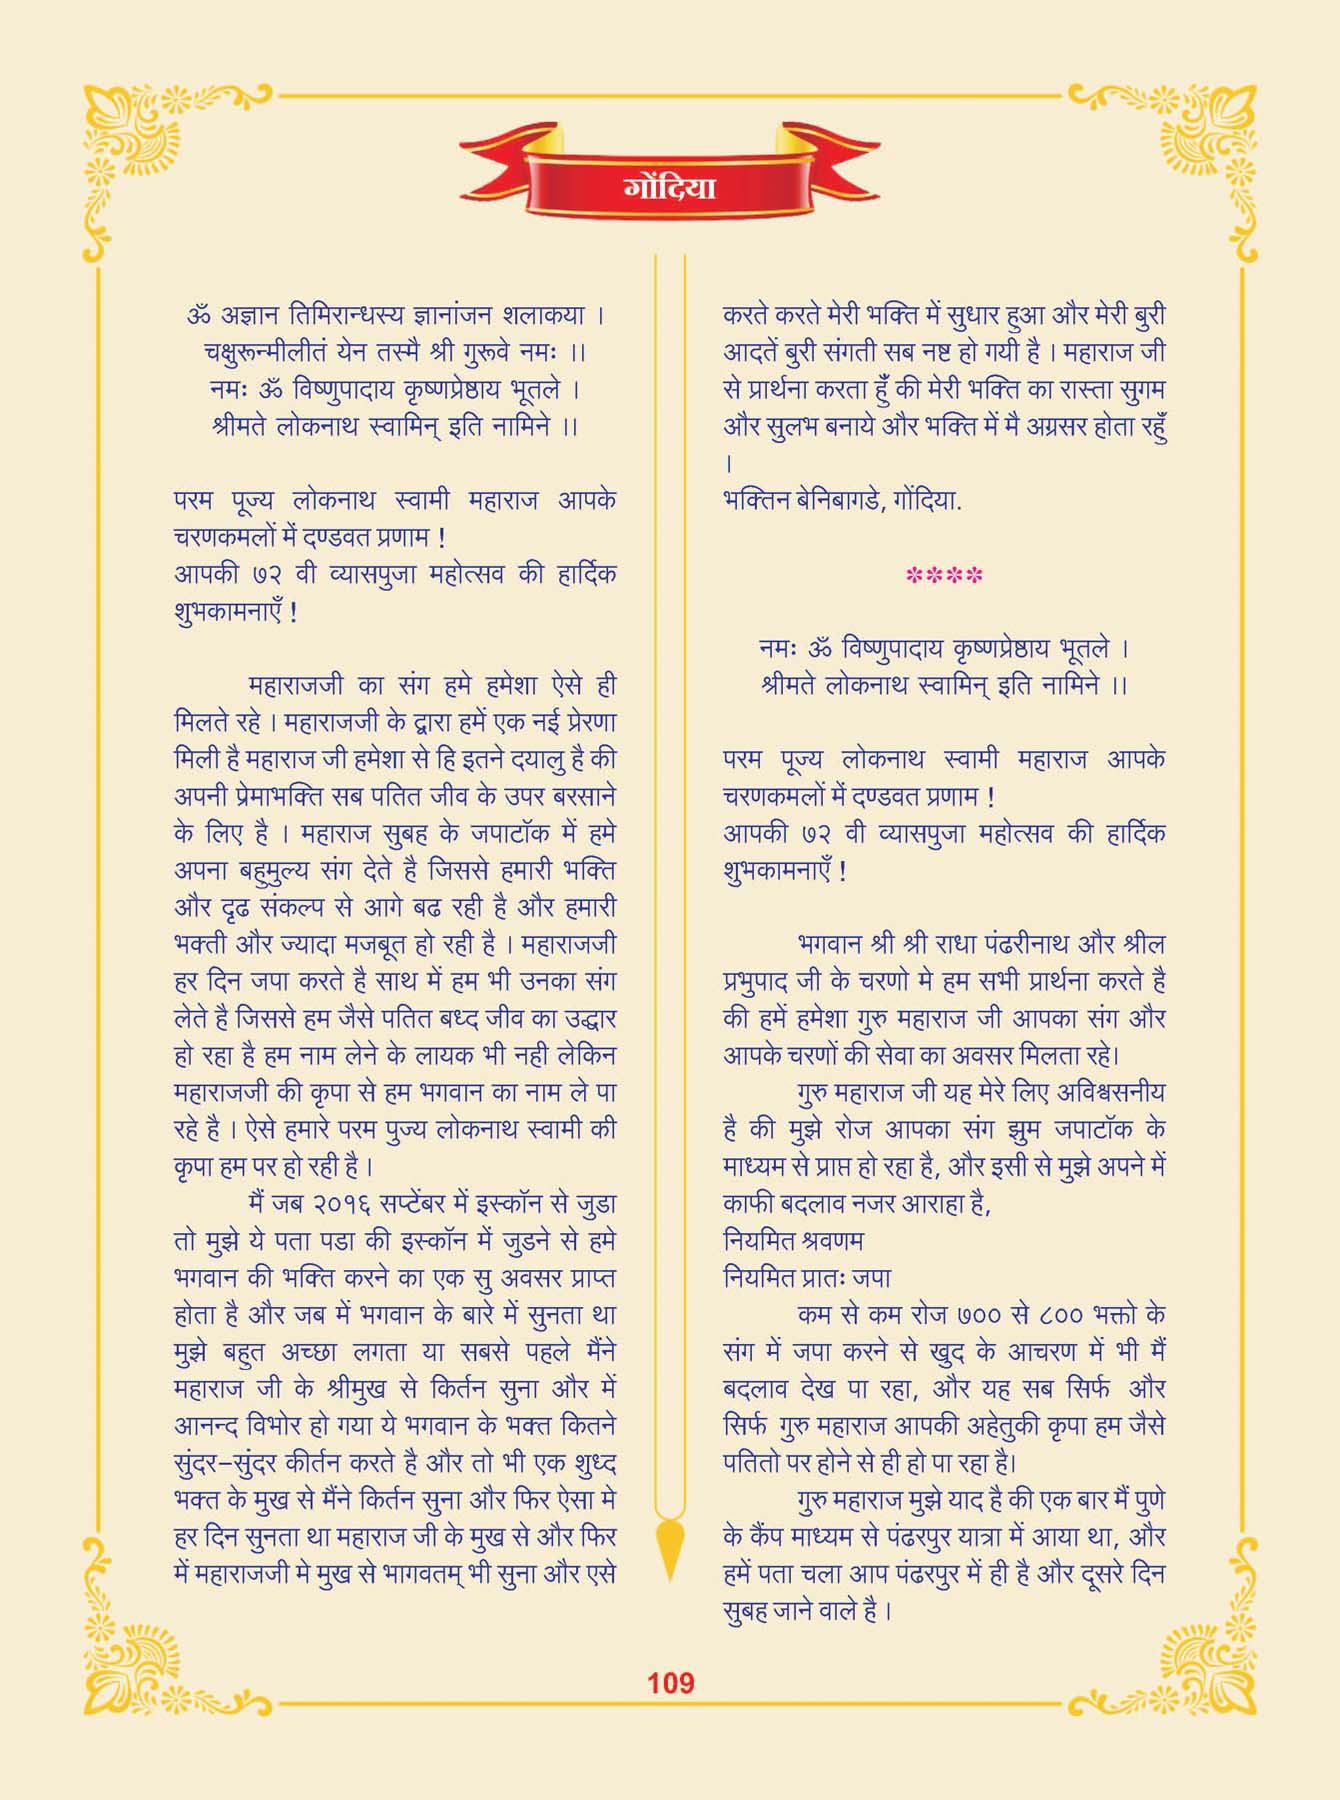 गोंदिया
ॐ अज्ञान तिमिरान्धस्य ज्ञानांजन शलाकया ।
चक्षुरून्मीलीतं येन तस्मै श्री गुरूवे नमः ।।
नमः ॐ विष्णुपादाय कृष्णप्रेष्ठाय भूतले ।
श्रीमते लोकनाथ स्वामिन् इति नामिने ।।
परम पूज्य लोकनाथ स्वामी महाराज आपके
चरणकमलों में दण्डवत प्रणाम !
आपकी ७२ वी व्यासपुजा महोत्सव की हार्दिक
शुभकामनाएँ !
महाराजजी का संग हमे हमेशा ऐसे ही
मिलते रहे । महाराजजी के द्वारा हमें एक नई प्रेरणा
मिली है महाराज जी हमेशा से हि इतने दयालु है की
अपनी प्रेमाभक्ति सब पतित जीव के उपर बरसाने
के लिए है । महाराज सुबह के जपाटॉक में हमे
अपना बहुमुल्य संग देते है जिससे हमारी भक्ति
और दृढ संकल्प से आगे बढ रही है और हमारी
भक्ती और ज्यादा मजबूत हो रही है । महाराजजी
हर दिन जपा करते है साथ में हम भी उनका संग
लेते है जिससे हम जैसे पतित बध्द जीव का उद्धार
हो रहा है हम नाम लेने के लायक भी नही लेकिन
महाराजजी की कृपा से हम भगवान का नाम ले पा
रहे है । ऐसे हमारे परम पुज्य लोकनाथ स्वामी की
कृपा हम पर हो रही है ।
मैं जब २०१६ सप्टेंबर में इस्कॉन से जुडा
तो मुझे ये पता पडा की इस्कॉन में जुडने से हमे
भगवान की भक्ति करने का एक सु अवसर प्राप्त
होता है और जब में भगवान के बारे में सुनता था
मुझे बहुत अच्छा लगता या सबसे पहले मैंने
महाराज जी के श्रीमुख से किर्तन सुना और में
आनन्द विभोर हो गया ये भगवान के भक्त कितने
सुंदर-सुंदर कीर्तन करते है और तो भी एक शुध्द
भक्त के मुख से मैंने किर्तन सुना और फिर ऐसा मे
हर दिन सुनता था महाराज जी के मुख से और फिर
में महाराजजी मे मुख से भागवतम् भी सुना और एसे
करते करते मेरी भक्ति में सुधार हुआ और मेरी बुरी
आदतें बुरी संगती सब नष्ट हो गयी है । महाराज जी
से प्रार्थना करता हुँ की मेरी भक्ति का रास्ता सुगम
और सुलभ बनाये और भक्ति में मै अग्रसर होता रहुँ
।
भक्तिन बेनिबागडे, गोंदिया.
****
नमः ॐ विष्णुपादाय कृष्णप्रेष्ठाय भूतले ।
श्रीमते लोकनाथ स्वामिन् इति नामिने ।।
परम पूज्य लोकनाथ स्वामी महाराज आपके
चरणकमलों में दण्डवत प्रणाम !
आपकी ७२ वी व्यासपुजा महोत्सव की हार्दिक
शुभकामनाएँ !
भगवान श्री श्री राधा पंढरीनाथ और श्रील
प्रभुपाद जी के चरणो मे हम सभी प्रार्थना करते है
की हमें हमेशा गुरु महाराज जी आपका संग और
आपके चरणों की सेवा का अवसर मिलता रहे।
गुरु महाराज जी यह मेरे लिए अविश्वसनीय
है की मुझे रोज आपका संग झुम जपाटॉक के
माध्यम से प्राप्त हो रहा है, और इसी से मुझे अपने में
काफी बदलाव नजर आराहा है,
नियमित श्रवणम
नियमित प्रातः जपा
कम से कम रोज ७०० से ८०० भक्तो के
संग में जपा करने से खुद के आचरण में भी मैं
बदलाव देख पा रहा, और यह सब सिर्फ और
सिर्फ गुरु महाराज आपकी अहेतुकी कृपा हम जैसे
पतितो पर होने से ही हो पा रहा है।
गुरु महाराज मुझे याद है की एक बार मैं पुणे
के कैंप माध्यम से पंढरपुर यात्रा में आया था, और
हमें पता चला आप पंढरपुर में ही है और दूसरे दिन
सुबह जाने वाले है ।
109